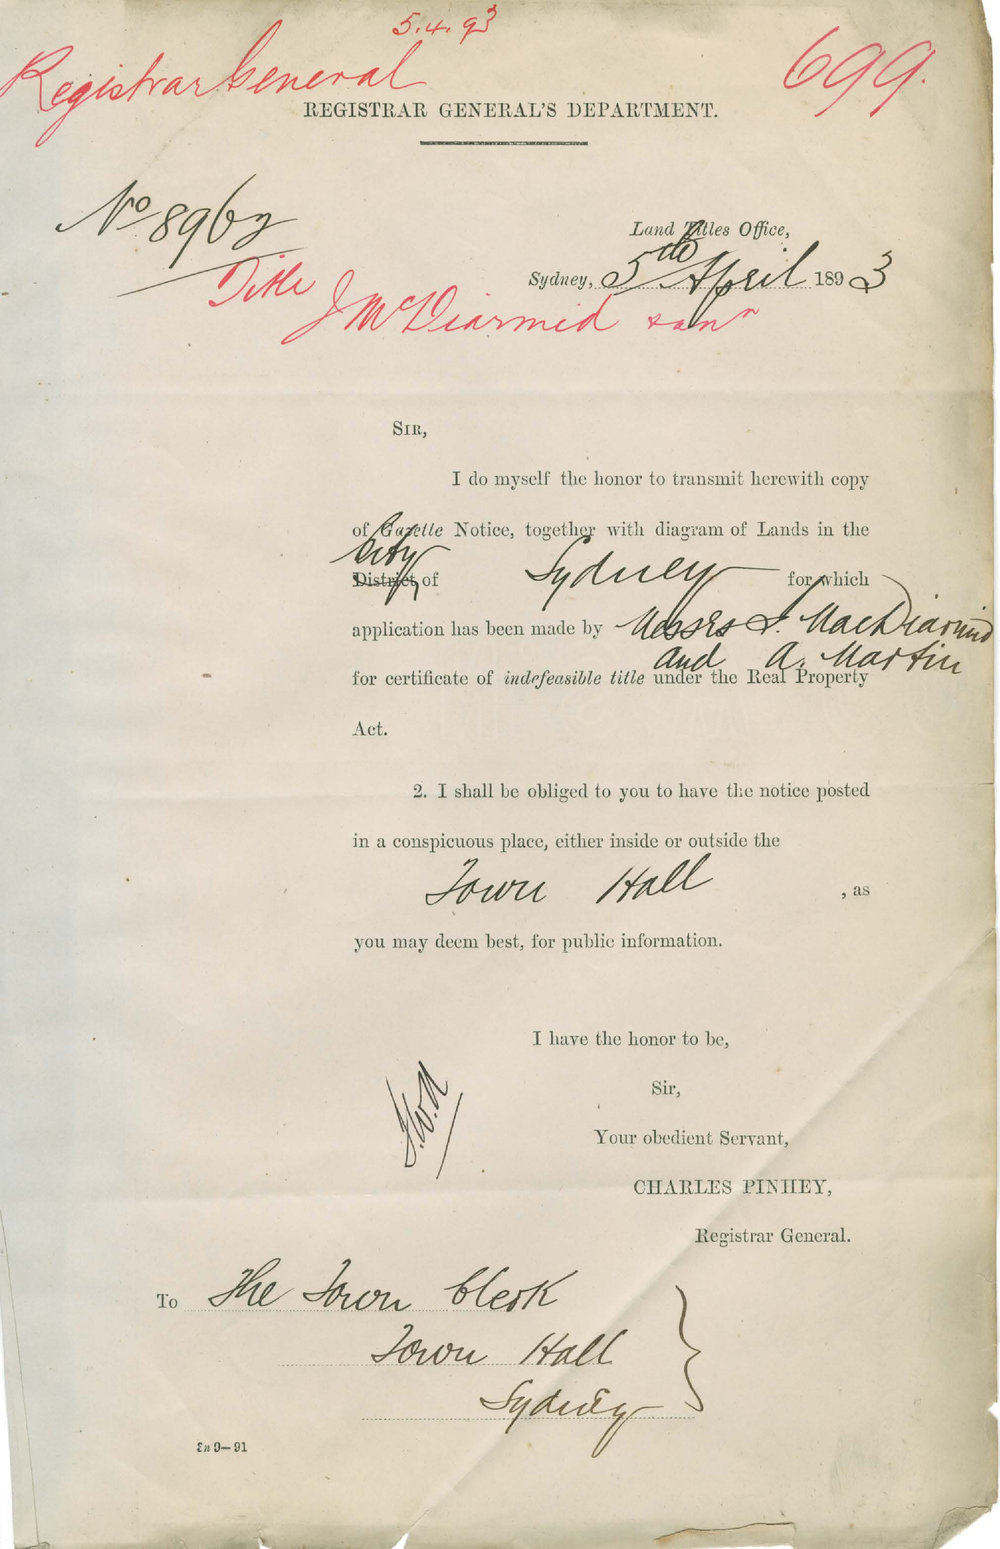 5.4.93
Registrar General
699.
REGISTRAR GENERAL'S DEPARTMENT.
No 8962
Land Titles Office,
Sydney, 5th April 1893
Title
J McDiarmid
SIR,
I do myself the honor to transmit herewith copy
of Gazette Notice, together with diagram of Lands in the
City
District of Sydney for which
application has been made by Messrs J. MacDiarmid
and A. Martin
for certificate of indefeasible title under the Real Property
Act.
2. I shall be obliged to you to have the notice posted
in a conspicuous place, either inside or outside the
Town Hall , as
you may deem best, for public information.
I have the honor to be,
Sir,
Your obedient Servant,
CHARLES PINHEY,
Registrar General.
To The Town Clerk
Town Hall
Sydney
9—91